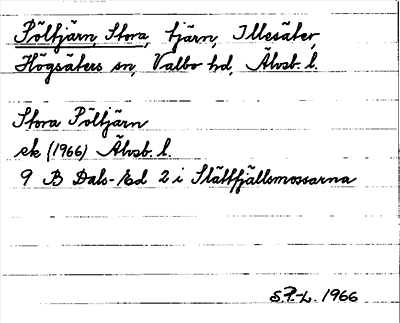 Pöltjärn, Stora, tjärn, Illesäter,
Högsäters sn, Valbo hd, Älvsb. l.
Stora Pöltjärn
ek (1966) Älvsb. l.
9 B Dals-Ed 2 i Slättfjällsmossarna
S.F.-L. 1966